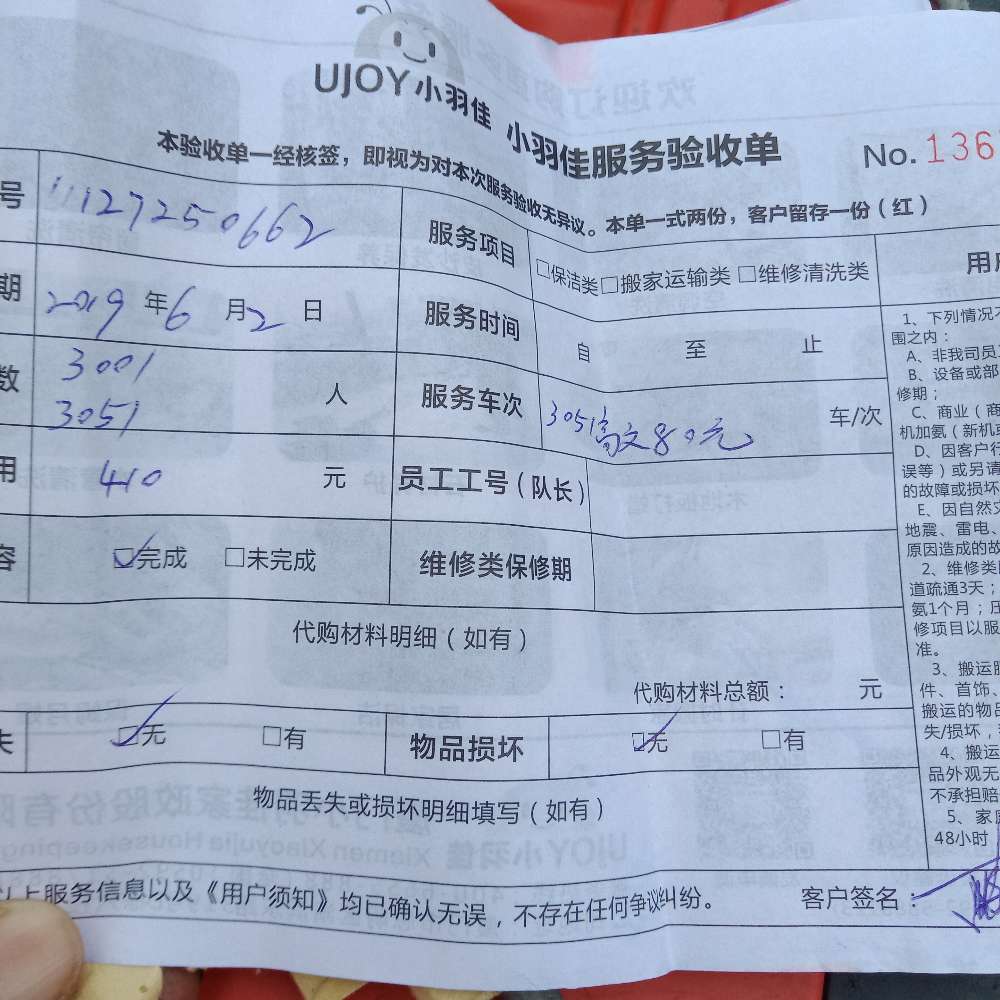 UJOY小羽佳 小羽佳服务验收单
No.136
本验收单一经核签，即视为对本次服务验收无异议。本单一式两份，客户留存一份（红）
号 11127250662 服务项目 □保洁类□搬家运输类□维修清洗类
期 2019年6月2日 服务时间 自 至 止
数 3001 3051 人 服务车次 3051高文80元 车/次
用 410 元 员工工号（队长）
容 □完成 □未完成 维修类保修期
代购材料明细（如有）
代购材料总额： 元
失 □无 □有 物品损坏 □无 □有
物品丢失或损坏明细填写（如有）
以上服务信息以及《用户须知》均已确认无误，不存在任何争议纠纷。 客户签名：
用户
1、下列情况不
围之内：
A、非我司员工
B、设备或部
修期；
C、商业（商
机加氨（新机或
D、因客户行
误等）或另请
的故障或损坏
E、因自然灾
地震、雷电、
原因造成的故
2、维修类
道疏通3天；
氨1个月；压
修项目以服
准。
3、搬运服
件、首饰、
搬运的物品
失/损坏，
4、搬运
品外观无
不承担赔
5、家庭
48小时